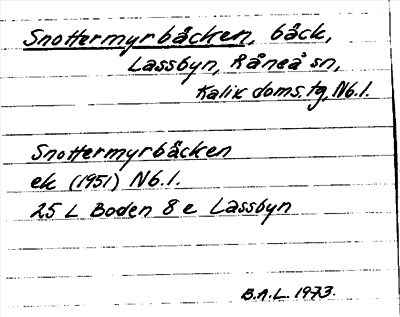 Snottermyrbäcken, bäck,
Lassbyn, Råneå sn,
Kalix doms.tg, Nb.l.
Snottermyrbäcken
ek (1951) Nb.l.
25 L Boden 8 e Lassbyn
B.A.L. 1973.